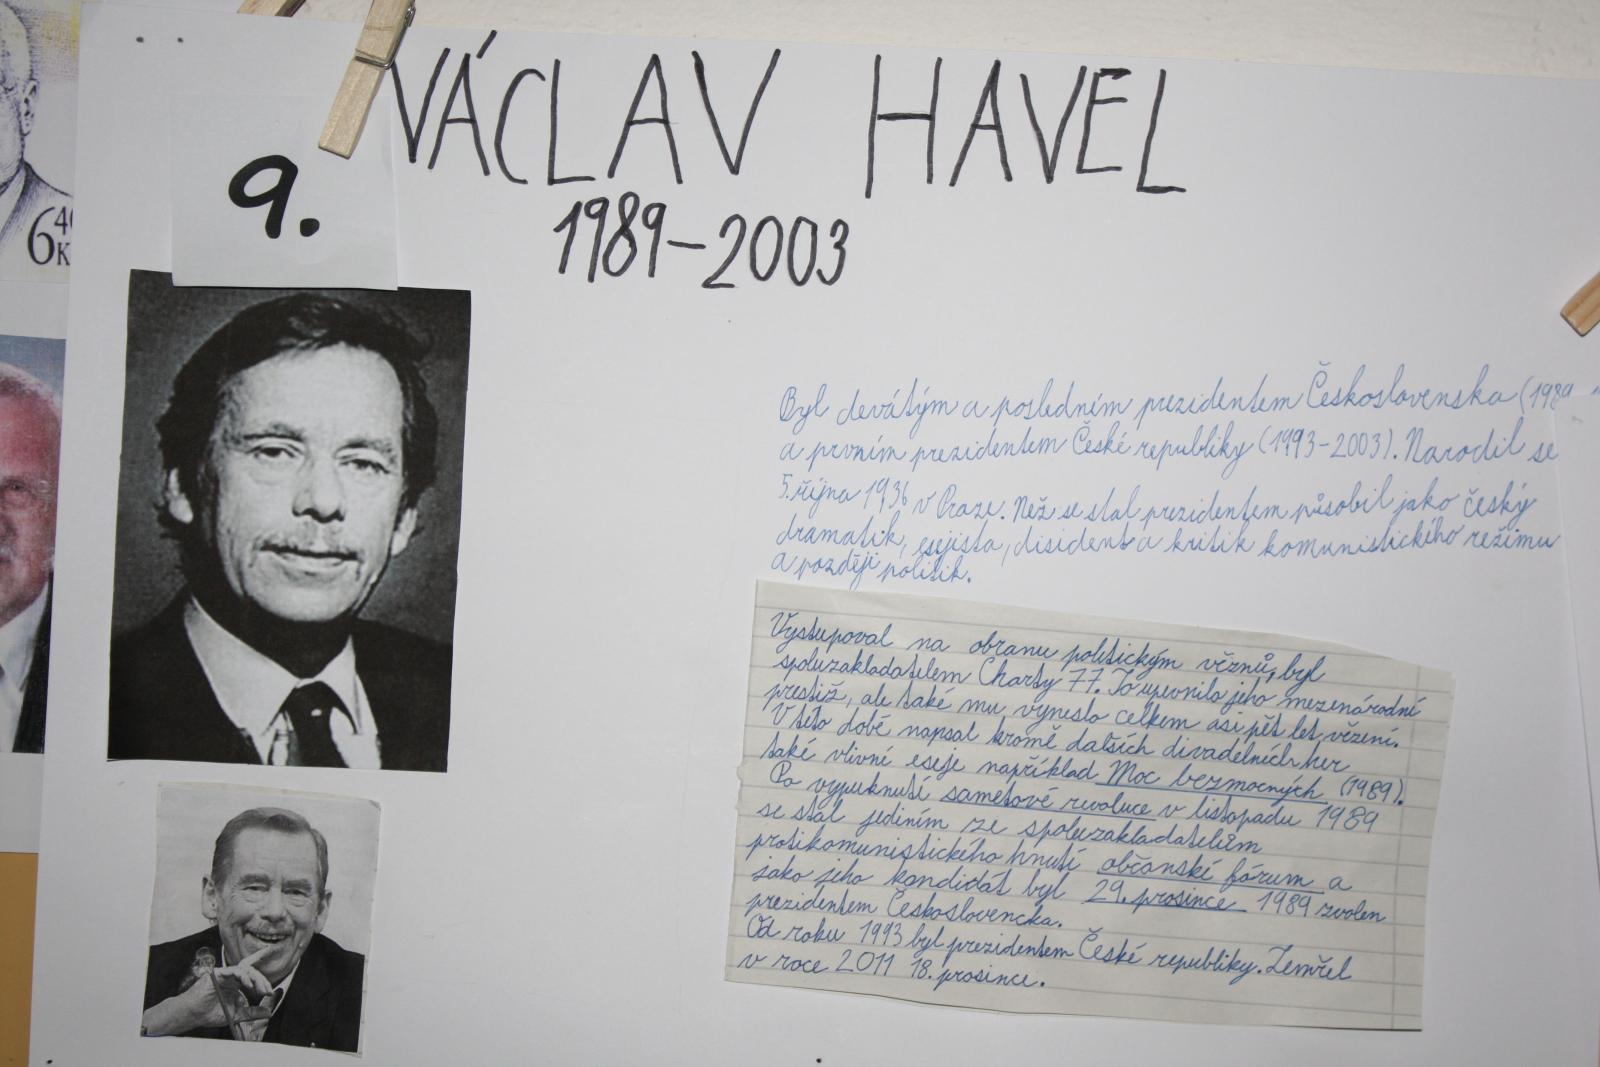 VÁCLAV HAVEL
9.
1989-2003
6 40
K
Byl devátým a posledním prezidentem Československa (1989
a prvním prezidentem České republiky (1993-2003). Narodil se
5. října 1936 v Praze. Než se stal prezidentem působil jako český
dramatik, esejista, disident a kritik komunistického režimu
a později politik.
Vystupoval na obranu politickým věznů, byl
spoluzakladatelem Charty 77. To upevnilo jeho mezenárodní
prestiž, ale také mu vyneslo celkem asi pět let vězení.
V této době napsal kromě dalších divadelních her
také vlivní eseje například Moc bezmocných (1989).
Po vypuknutí sametové revoluce v listopadu 1989
se stal jediním ze spoluzakladatelům
protikomunistického hnutí občanské fórum a
jako jeho kandidát byl 29. prosince 1989 zvolen
prezidentem Československa.
Od roku 1993 byl prezidentem České republiky. Zemřel
v roce 2011 18. prosince.